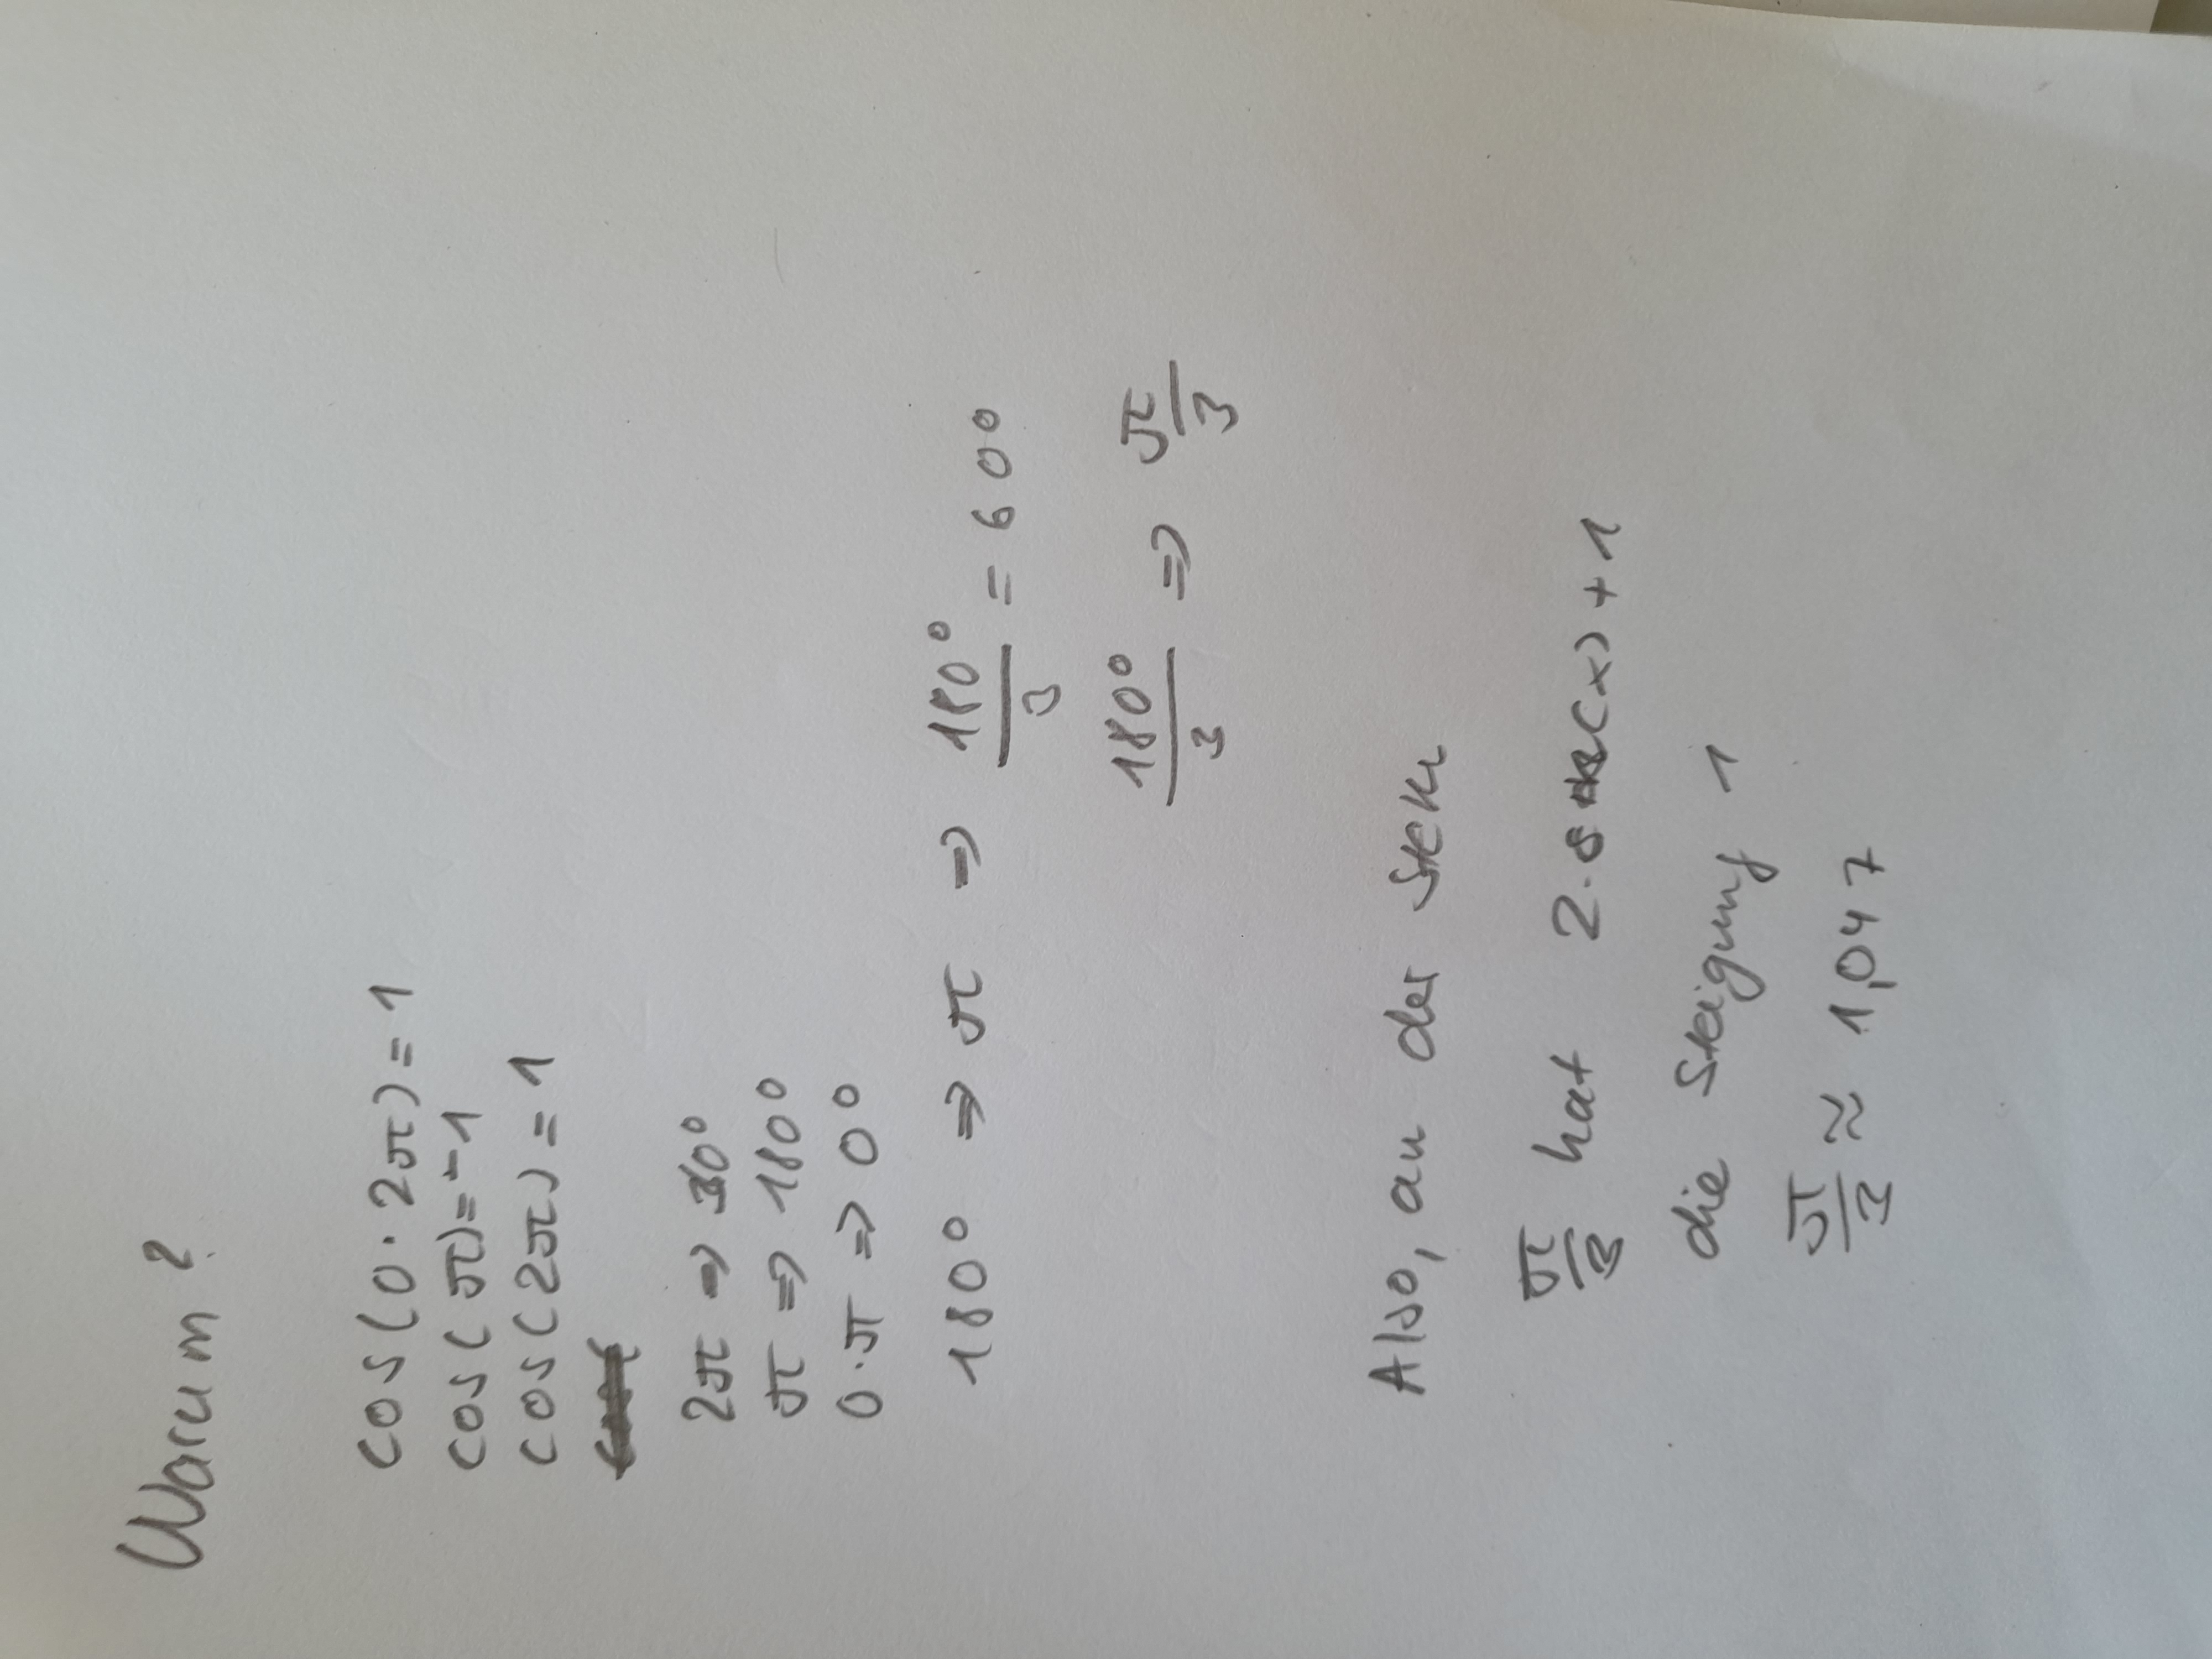 Warum?
cos(0·2π)=1
cos(π)=-1
cos(2π)=1
2π ⇒ 0°
π ⇒ 180°
0·π ⇒ 0°
180° ⇒ π ⇒ 180°/3 = 60°
180°/3 ⇒ π/3
Also, an der Stelle
π/3 hat 2· (x)+1
die Steigung 1
π/3 ≈ 1,047